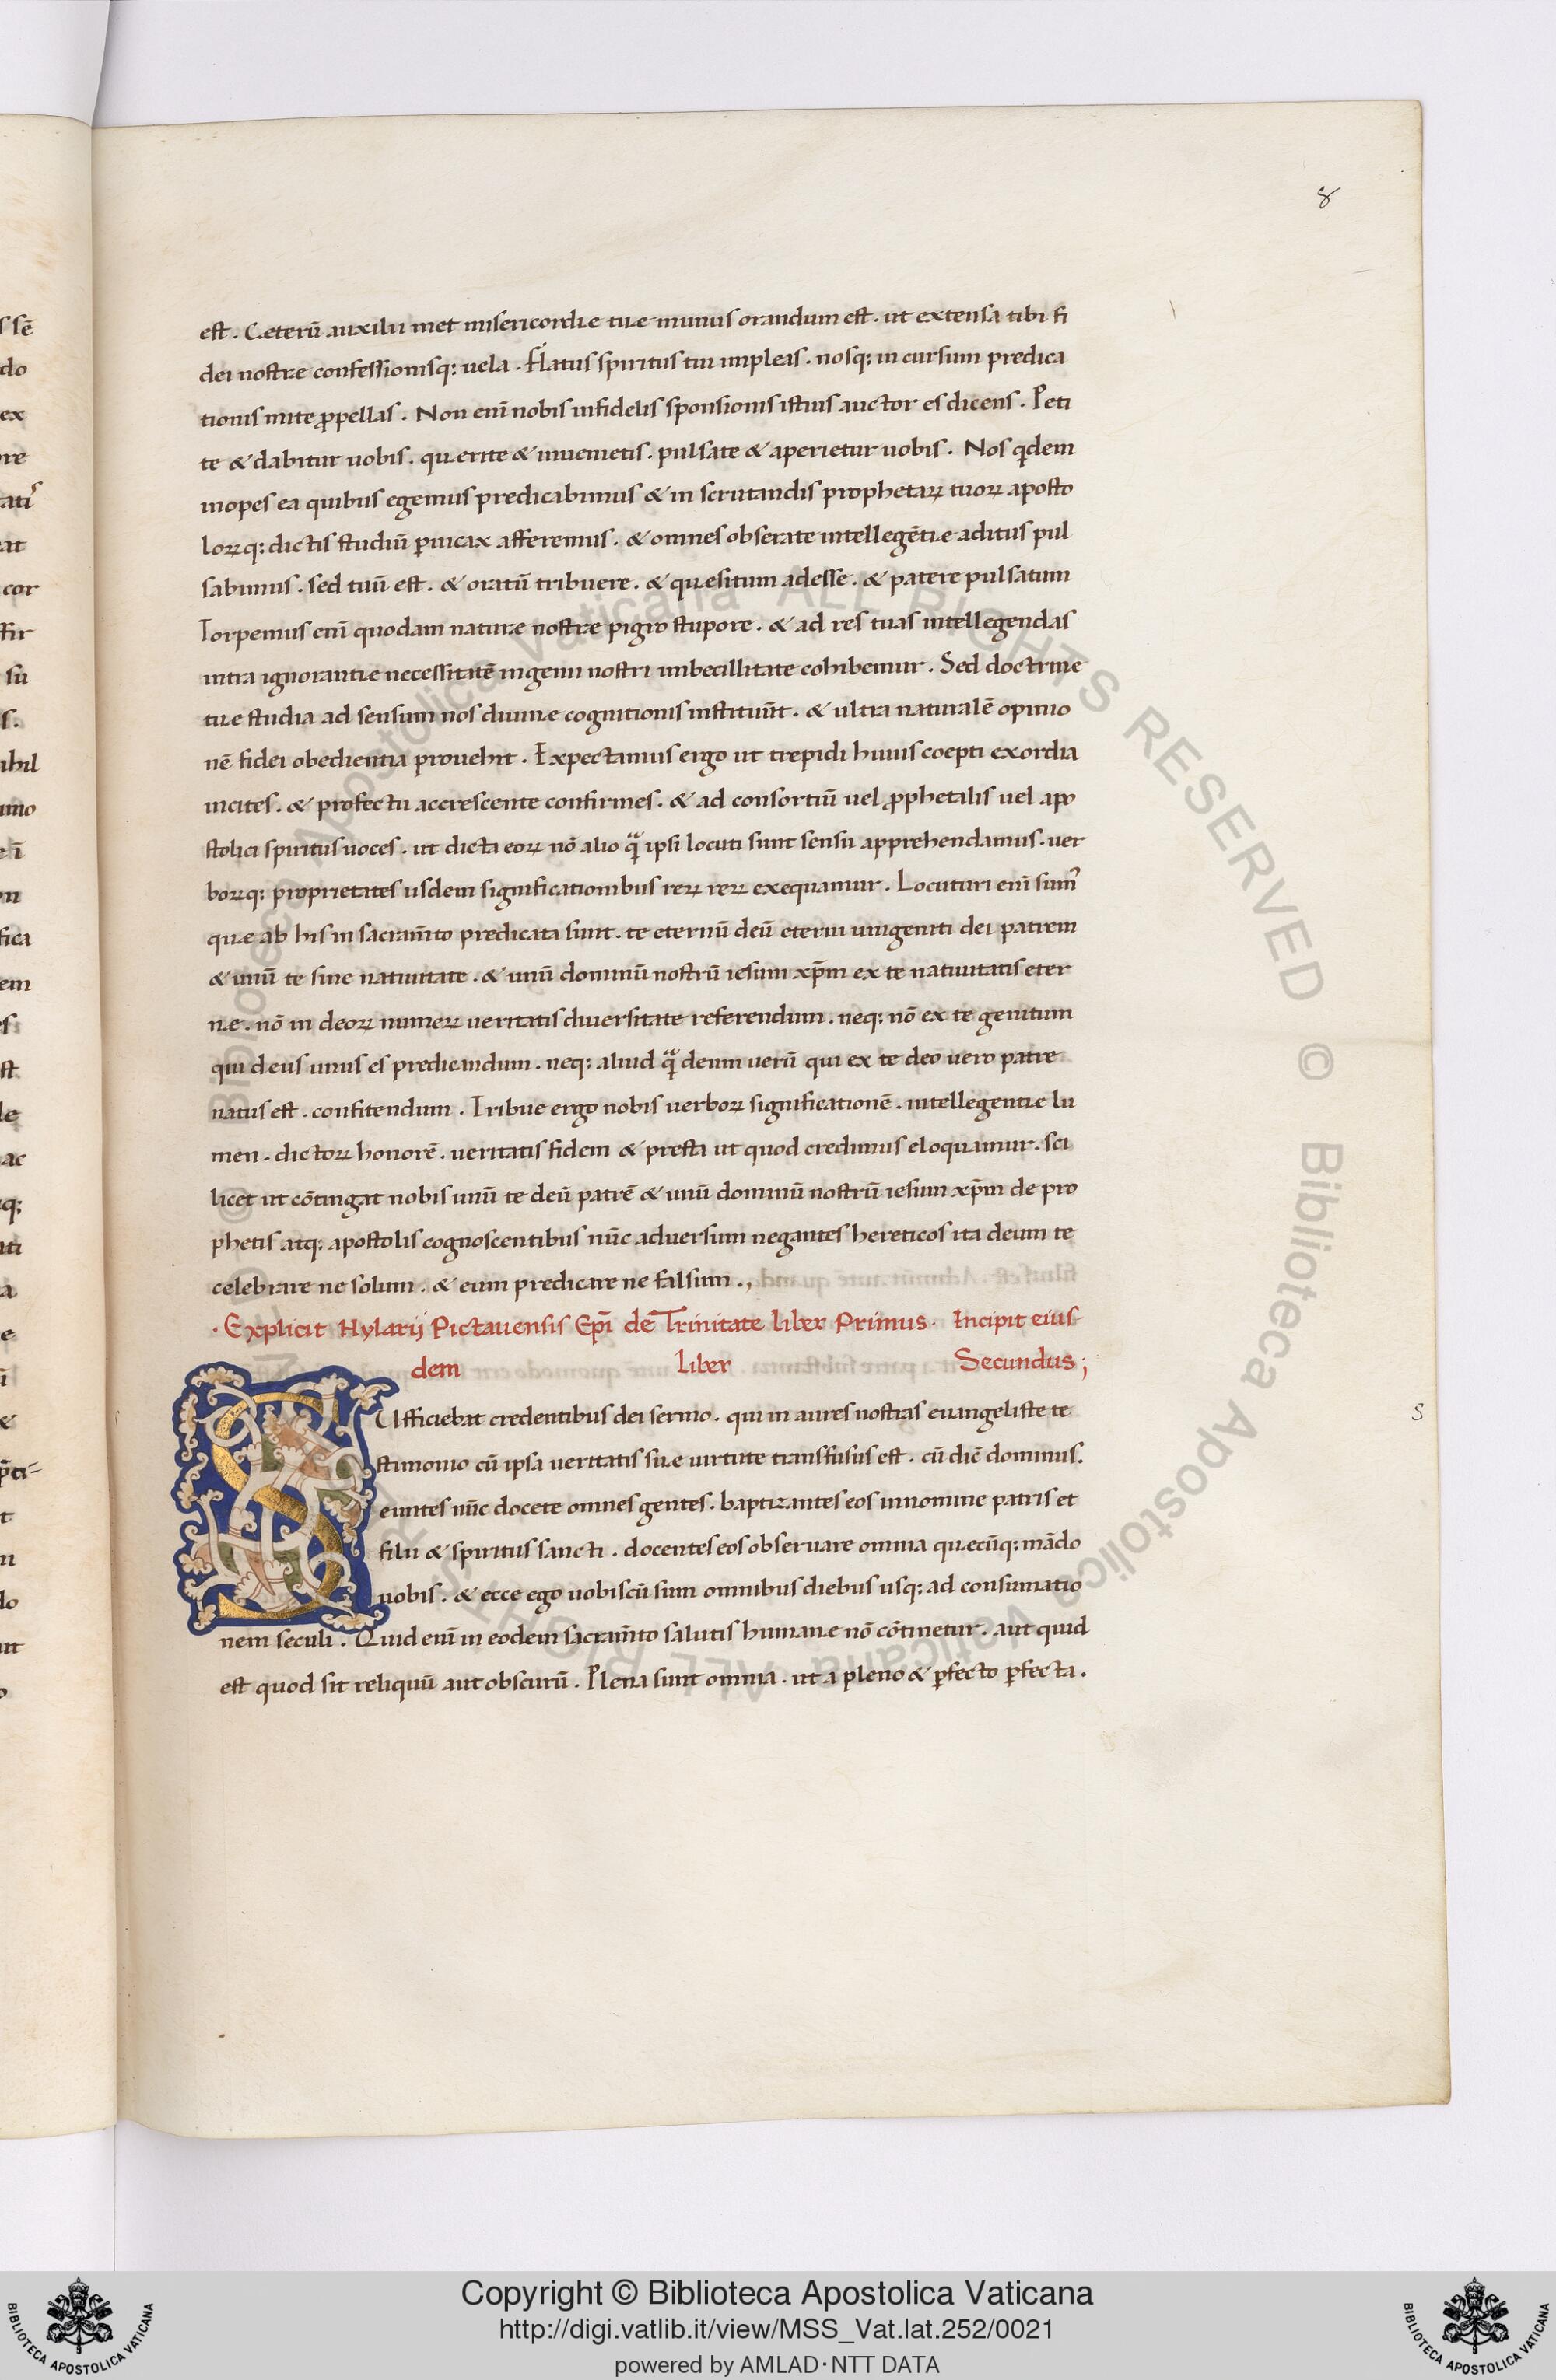 8
est . Ceterū auxilii met misericordie tue munus orandum est . ut extensa tibi fi
dei nostre confessionisq; uela . Flatus spiritus tui impleas . nosq; in cursum predica
tionis inite ꝓpellas . Non enī nobis infidelis sponsionis istius auctor es dicens . Peti
te & dabitur uobis . querite & inuenietis . pulsate & aperietur uobis . Nos qͥdem
inopes ea quibus egemus predicabimus & in scrutandis prophetaꝝ tuoꝝ aposto
loꝝq; dictis studiū ꝑuicax afferemus . & omnes obserate intellegētie aditus pul
sabimus . sed tuū est . & oratū tribuere . & quesitum adesse . & patere pulsatum
Torpemus enī quodam nature nostre pigro stupore . & ad res tuas intellegendas
intra ignorantie necessitatē ingenii nostri imbecillitate cohibemur . Sed doctrine
tue studia ad sensum nos diuine cognitionis instituūt . & ultra naturalē opinio
nē fidei obedientia prouehit . Expectamus ergo ut trepidi huius coepti exordia
incites . & profectu accrescente confirmes . & ad consortiū uel ꝓphetalis uel apo
stolici spiritus uoces . ut dicta eoꝝ nō alio qᷓ ipsi locuti sunt sensu apprehendamus . uer
boꝝq; proprietates iisdem significationibus reꝝ reꝝ exequamur . Locuturi enī sumꝰ
que ab his in sacram̄to predicata sunt . te eternū deū eterni unigeniti dei patrem
& unū te sine natiuitate . & unū dominū nostrū iesum xp̄m ex te natiuitatis eter
ne . nō in deoꝝ numeꝝ ueritatis diuersitate referendum . neq; nō ex te genitum
qui deus unus es predicandum . neq; aliud qᷓ deum uerū qui ex te deo uero patre
natus est . confitendum . Tribue ergo nobis uerboꝝ significationē . intellegentie lu
men . dictoꝝ honorē . ueritatis fidem & presta ut quod credimus eloquamur . sci
licet ut cōtingat nobis unū te deū patrē & unū dominū nostrū iesum xp̄m de pro
phetis atq; apostolis cognoscentibus nūc aduersum negantes hereticos ita deum te
celebrare ne solum . & eum predicare ne falsum .,
· Explicit Hylarij Pictauensis Ep̄i de Trinitate liber Primus · Incipit eius
dem liber Secundus ;
SUfficiebat credentibus dei sermo . qui in aures nostras euangeliste te
stimonio cū ipsa ueritatis sue uirtute transfusus est . cū dic̄ dominus .
euntes nūc docete omnes gentes . baptizantes eos in nomine patris et
filii & spiritus sancti . docentes eos obseruare omnia quecūq; mādo
uobis . & ecce ego uobiscū sum omnibus diebus usq; ad consumatio
nem seculi . Quid enī in eodem sacram̄to salutis humane nō cōtinetur . aut quid
est quod sit reliquū aut obscurū . Plena sunt omnia . ut a pleno & ꝑfecto ꝑfecta .
s
© Biblioteca Apostolica Vaticana ALL RIGHTS RESERVED
Copyright © Biblioteca Apostolica Vaticana
http://digi.vatlib.it/view/MSS_Vat.lat.252/0021
powered by AMLAD·NTT DATA
BIBLIOTECA APOSTOLICA VATICANA
BIBLIOTECA APOSTOLICA VATICANA